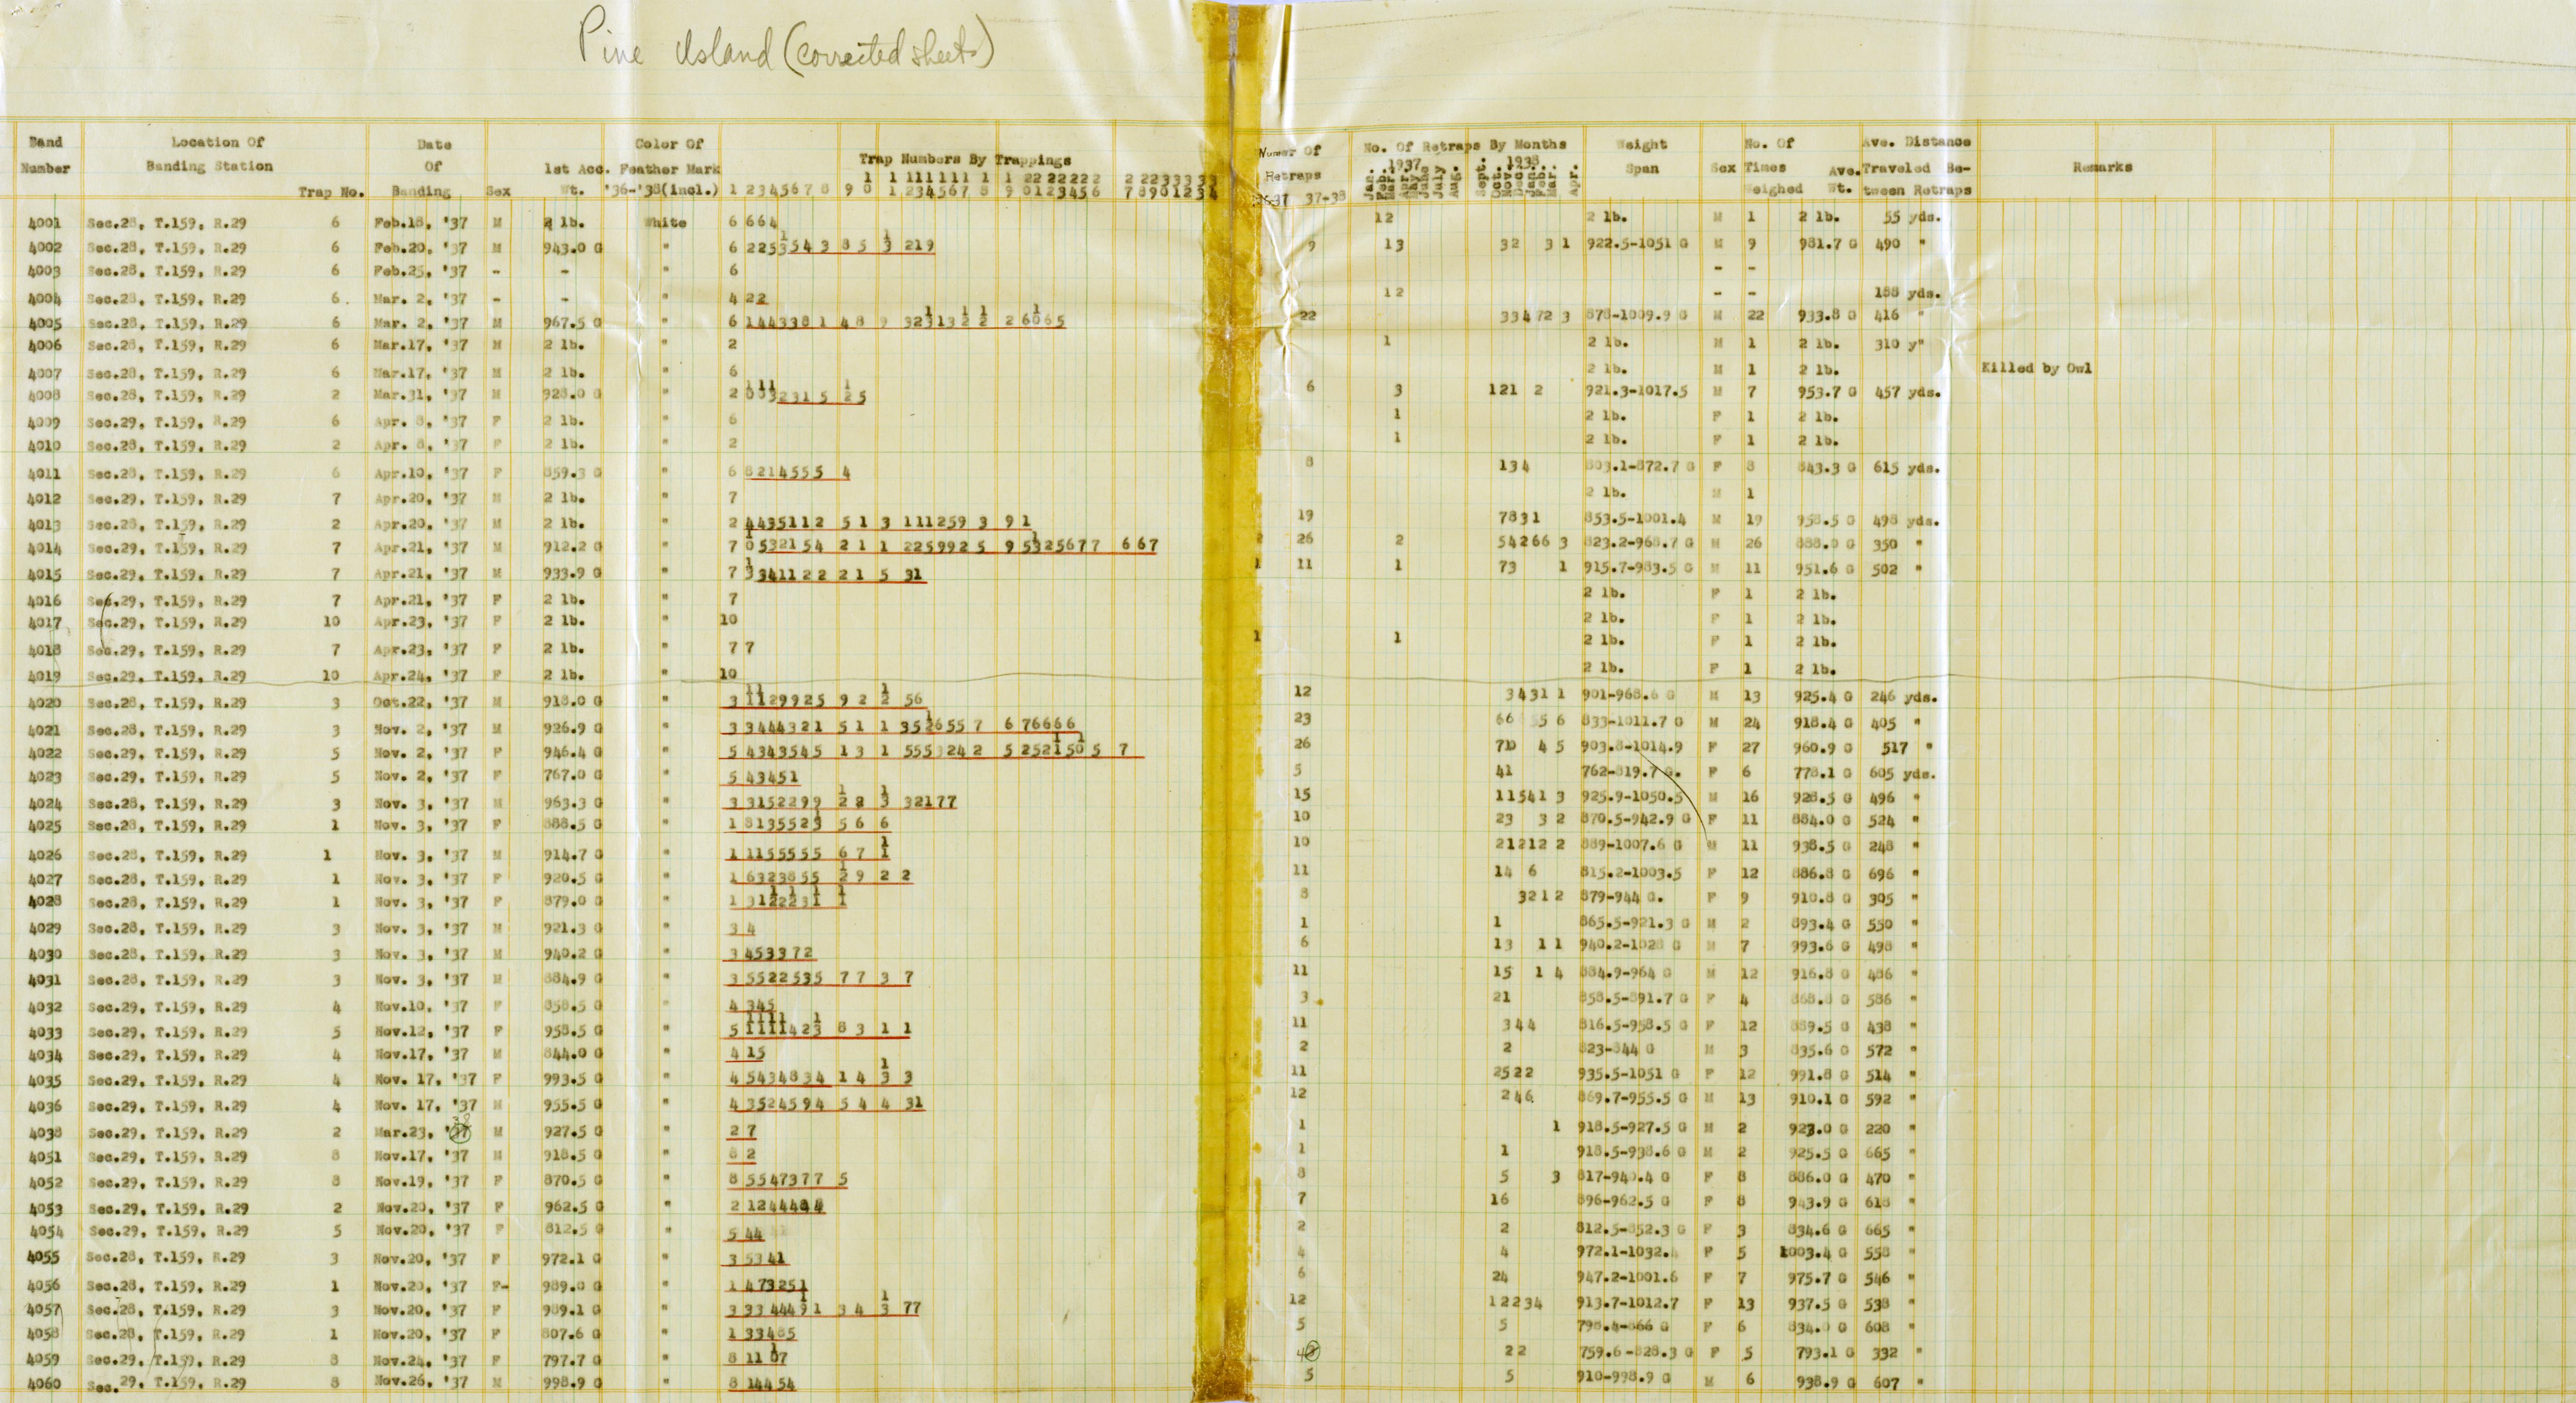 Pine Island (corrected sheets)
Band Number Location Of Banding Station Trap No. Date Of Banding Sex 1st Acc. Wt. Color Of Feather Mark '36-'38(incl.) Trap Numbers By Trappings Retraps 37-38 No. Of Retraps By Months Weight Span Sex No. Of Times Weighed Ave. Wt. Ave. Distance Traveled Between Retraps Remarks
4001 Sec.28, T.159, R.29 6 Feb.18, '37 M 2 lb. White 6 664 12 2 lb. M 1 2 lb. 55 yds.
4002 Sec.28, T.159, R.29 6 Feb.20, '37 M 943.0 G " 9 13 32 3 1 922.5-1051 G M 9 981.7 G 490 "
4003 Sec.28, T.159, R.29 6 Feb.25, '37 - - " 6 - -
4004 Sec.28, T.159, R.29 6. Mar. 2, '37 - - " 4 22 12 - - 188 yds.
4005 Sec.28, T.159, R.29 6 Mar. 2, '37 M 967.5 G " 22 33472 3 878-1009.9 G M 22 933.8 G 416 "
4006 Sec.28, T.159, R.29 6 Mar.17, '37 M 2 lb. " 2 1 2 lb. M 1 2 lb. 310 y"
4007 Sec.28, T.159, R.29 6 Mar.17, '37 M 2 lb. " 6 2 lb. M 1 2 lb. Killed by Owl
4008 Sec.28, T.159, R.29 2 Mar.31, '37 M 928.0 G " 6 3 121 2 921.3-1017.5 M 7 953.7 G 457 yds.
4009 Sec.29, T.159, R.29 6 Apr. 8, '37 F 2 lb. " 6 1 2 lb. F 1 2 lb.
4010 Sec.28, T.159, R.29 2 Apr. 8, '37 F 2 lb. " 2 1 2 lb. F 1 2 lb.
4011 Sec.28, T.159, R.29 6 Apr.10, '37 F 859.3 G " 6 8214555 4 8 134 803.1-872.7 G F 8 843.3 G 615 yds.
4012 Sec.29, T.159, R.29 7 Apr.20, '37 M 2 lb. " 7 2 lb. M 1
4013 Sec.28, T.159, R.29 2 Apr.20, '37 M 2 lb. " 2 4435112 5 1 3 111259 3 9 1 19 7831 853.5-1001.4 M 19 958.5 G 498 yds.
4014 Sec.29, T.159, R.29 7 Apr.21, '37 M 912.2 G " 26 2 54266 3 823.2-968.7 G M 26 888.0 G 350 "
4015 Sec.29, T.159, R.29 7 Apr.21, '37 M 933.9 G " 1 11 1 73 1 915.7-983.5 G M 11 951.6 G 502 "
4016 Sec.29, T.159, R.29 7 Apr.21, '37 F 2 lb. " 7 2 lb. F 1 2 lb.
4017 Sec.29, T.159, R.29 10 Apr.23, '37 F 2 lb. " 10 2 lb. F 1 2 lb.
4018 Sec.29, T.159, R.29 7 Apr.23, '37 F 2 lb. " 7 7 1 1 2 lb. F 1 2 lb.
4019 Sec.29, T.159, R.29 10 Apr.24, '37 F 2 lb. " 10 2 lb. F 1 2 lb.
4020 Sec.28, T.159, R.29 3 Oct.22, '37 M 918.0 G " 12 3431 1 901-968.6 G M 13 925.4 G 246 yds.
4021 Sec.28, T.159, R.29 3 Nov. 2, '37 M 926.9 G " 23 66 5 6 833-1011.7 G M 24 918.4 G 405 "
4022 Sec.29, T.159, R.29 5 Nov. 2, '37 F 946.4 G " 26 4 5 903.8-1014.9 F 27 960.9 G 517 "
4023 Sec.29, T.159, R.29 5 Nov. 2, '37 F 767.0 G " 5 43451 5 41 762-819.7 G. F 6 778.1 G 605 yds.
4024 Sec.28, T.159, R.29 3 Nov. 3, '37 M 963.3 G " 15 11541 3 925.9-1050.5 M 16 928.5 G 496 "
4025 Sec.28, T.159, R.29 1 Nov. 3, '37 F 888.5 G " 10 23 3 2 870.5-942.9 G F 11 884.0 G 524 "
4026 Sec.28, T.159, R.29 1 Nov. 3, '37 M 914.7 G " 10 21212 2 889-1007.6 G M 11 938.5 G 248 "
4027 Sec.28, T.159, R.29 1 Nov. 3, '37 F 920.5 G " 11 14 6 815.2-1003.5 F 12 886.8 G 696 "
4028 Sec.28, T.159, R.29 1 Nov. 3, '37 F 879.0 G " 8 321 2 879-944 G. F 9 910.8 G 305 "
4029 Sec.28, T.159, R.29 3 Nov. 3, '37 M 921.3 G " 3 4 1 1 865.5-921.3 G M 2 893.4 G 550 "
4030 Sec.28, T.159, R.29 3 Nov. 3, '37 M 940.2 G " 3 453372 6 13 1 1 940.2-1028 G M 7 993.6 G 498 "
4031 Sec.28, T.159, R.29 3 Nov. 3, '37 M 884.9 G " 3 5522535 7 7 3 7 11 15 1 4 884.9-964 G M 12 916.8 G 486 "
4032 Sec.29, T.159, R.29 4 Nov.10, '37 F 858.5 G " 4 345 3 21 858.5-891.7 G F 4 868.8 G 586 "
4033 Sec.29, T.159, R.29 5 Nov.12, '37 F 958.5 G " 11 344 816.5-958.5 G F 12 889.5 G 438 "
4034 Sec.29, T.159, R.29 4 Nov.17, '37 M 844.0 G " 4 15 2 2 823-844 G M 3 835.6 G 572 "
4035 Sec.29, T.159, R.29 4 Nov. 17, '37 F 993.5 G " 11 2522 935.5-1051 G F 12 991.8 G 514 "
4036 Sec.29, T.159, R.29 4 Nov. 17, '37 M 955.5 G " 4 3524594 5 4 4 31 12 246 869.7-955.5 G M 13 910.1 G 592 "
4038 Sec.29, T.159, R.29 2 Mar.23, '38 M 927.5 G " 2 7 1 1 918.5-927.5 G M 2 923.0 G 220 "
4051 Sec.29, T.159, R.29 8 Nov.17, '37 M 918.5 G " 8 2 1 1 918.5-938.6 G M 2 925.5 G 665 "
4052 Sec.29, T.159, R.29 8 Nov.19, '37 F 870.5 G " 8 5547377 5 8 5 3 817-940.4 G F 8 886.0 G 470 "
4053 Sec.29, T.159, R.29 2 Nov.20, '37 F 962.5 G " 7 16 896-962.5 G F 8 943.9 G 618 "
4054 Sec.29, T.159, R.29 5 Nov.20, '37 F 812.5 G " 5 44 2 2 812.5-852.3 G F 3 834.6 G 665 "
4055 Sec.28, T.159, R.29 3 Nov.20, '37 F 972.1 G " 3 5341 4 4 972.1-1032. F 5 1003.4 G 558 "
4056 Sec.28, T.159, R.29 1 Nov.20, '37 F- 989.0 G " 1 473251 6 24 947.2-1001.6 F 7 975.7 G 546 "
4057 Sec.28, T.159, R.29 3 Nov.20, '37 F 989.1 G " 12 12234 913.7-1012.7 F 13 937.5 G 538 "
4058 Sec.28, T.159, R.29 1 Nov.20, '37 F 807.6 G " 1 33485 5 5 798.4-866 G F 6 834.0 G 608 "
4059 Sec.29, T.159, R.29 8 Nov.24, '37 F 797.7 G " 4 22 759.6-828.3 G F 5 793.1 G 332 "
4060 Sec.29, T.159, R.29 8 Nov.26, '37 M 998.9 G " 8 14454 5 5 910-998.9 G M 6 938.9 G 607 "